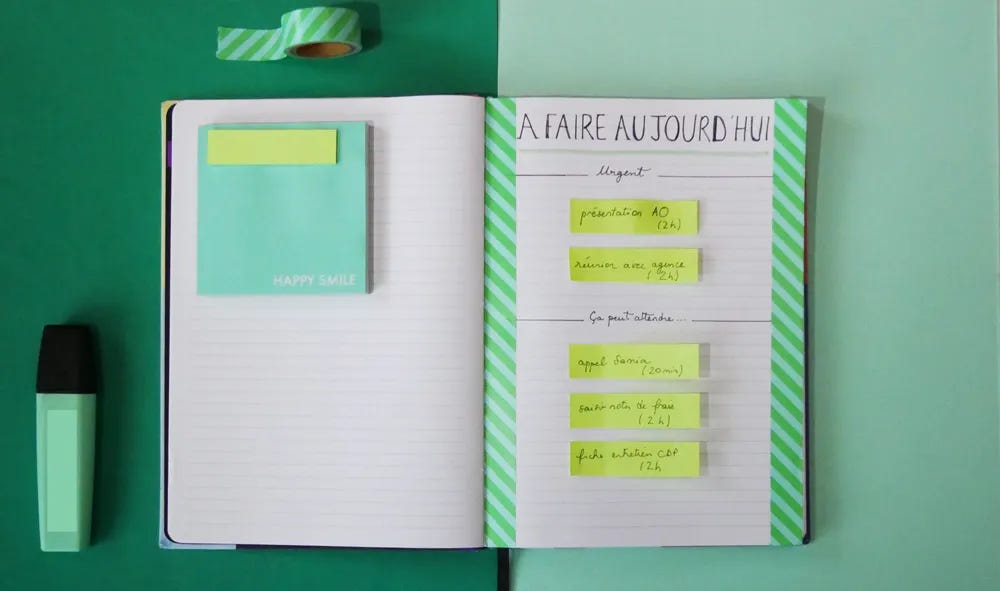 HAPPY SMILE
A FAIRE AUJOURD'HUI
Urgent
présentation AO
(2h)
réunion avec agence
(2h)
Ça peut attendre...
appel Sonia
(20min)
saisir notes de frais
(2h)
fiche entretien CDP
(2h